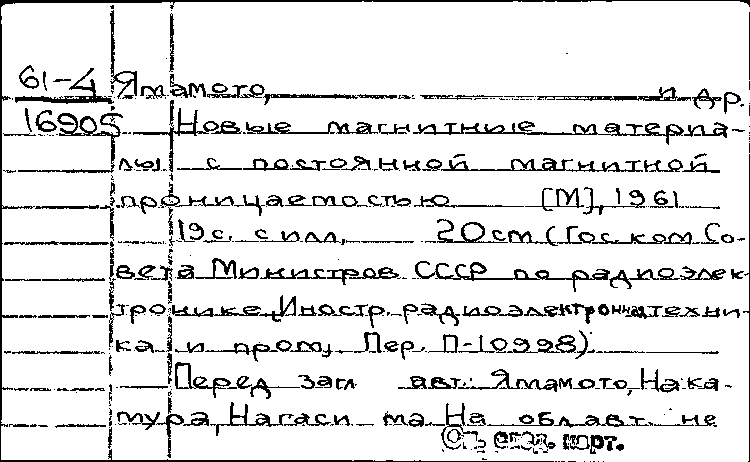 61-4 Ямамото, и др.
16905 Новые магнитные материа-
лы с постоянной магнитной
проницаемостью [М], 1961
19с. с илл, 20см (Гос ком Со-
вета Министров СССР по радиоэлек-
тронике, Иностр. радиоэлектронна техни-
ка и пром, Пер. П-10998)
Перед загл авт.: Ямамото, Нака-
мура, Нагаси ма На обл авт. не
См. след. карт.